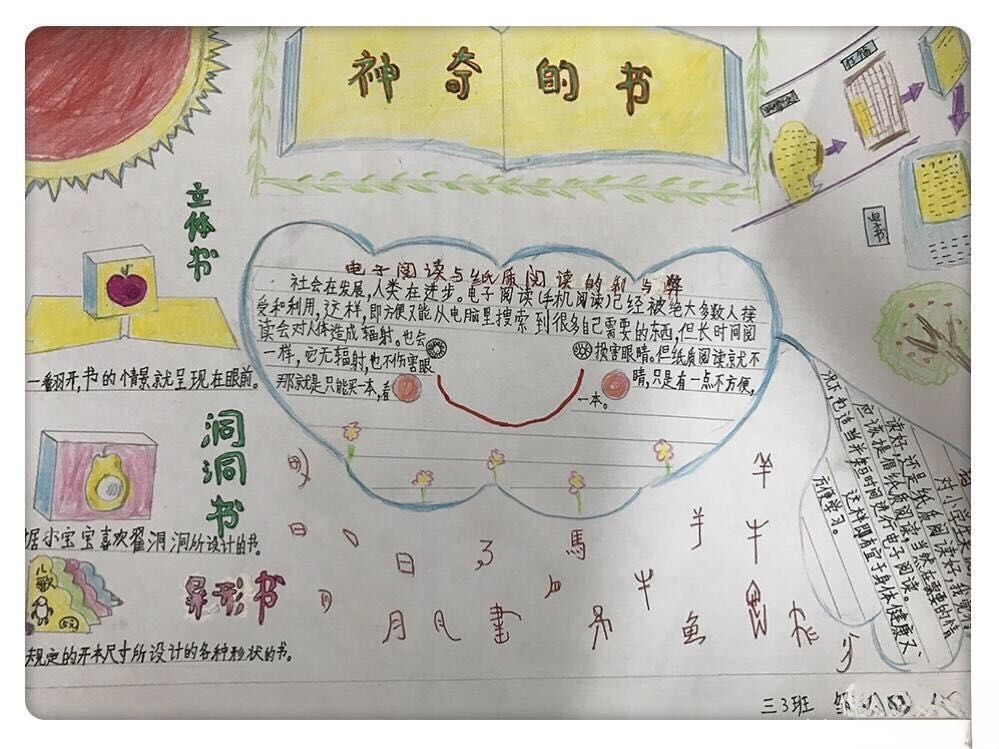 神奇的书
竹简
电子书
立体书
一番羽开,书的情景就呈现在眼前。
洞洞书
居小宝宝喜欢摳洞洞所设计的书。
儿歌
异形书
规定的开本尺寸所设计的各种形状的书。
电子阅读与纸质阅读的利与弊
社会在发展,人类在进步。电子阅读(手机阅读)已经被绝大多数人接
受和利用,这样,即方便又能从电脑里搜索到很多自己需要的东西,但长时间阅
读会对人体造成辐射。也会损害眼睛。但纸质阅读就不
一样,它无辐射,也不伤害眼睛,只是有一点不方便,
那就是只能买一本,看一本。
读好,还是纸质阅读好,我觉得
应该提倡纸质阅读,当然在需要的情
况下,也适当并短时间进行电子阅读。
这样即有宜于身体健康又
方便学习。
日
月
馬
羊
牛
鱼
三3班